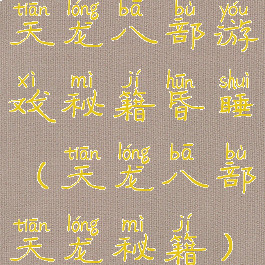 tiān lóng bā bù yóu
天龙八部游
xì mì jí hūn shuì
戏秘籍昏睡
tiān lóng bā bù
（天龙八部
tiān lóng mì jí
天龙秘籍）